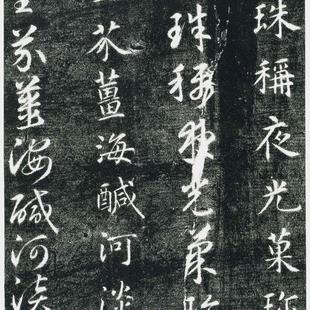 珠稱夜光菓珎
珠稱夜光菓珎
芥薑海鹹河淡
芥薑海鹹河淡